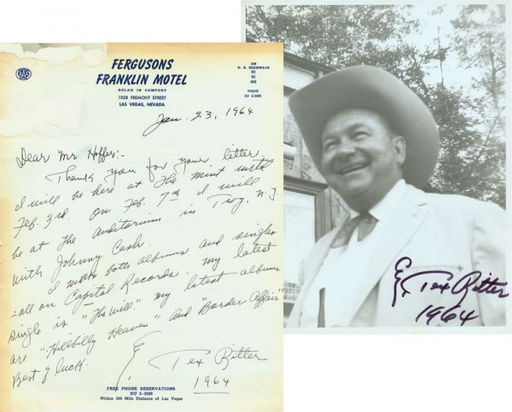 FERGUSONS
FRANKLIN MOTEL
RELAX IN COMFORT
1028 FREMONT STREET
LAS VEGAS, NEVADA
ON
U. S. HIGHWAYS
PHONE
Jan. 23, 1964
Dear Mr Hoffer:-
Thank you for your letter.
I will be here at The Mint until
Feb. 3rd. On Feb. 7th I will
be at the Auditorium in Troy, N.Y.
with Johnny Cash.
I make both albums and singles
all on Capitol Records. My latest
single is "His Will" my latest albums
are "Hillbilly Heaven" and "Border Affair"
Best of luck.
Tex Ritter
1964
FREE PHONE RESERVATIONS
DU 2-3000
Within 300 Mile Distance of Las Vegas
Tex Ritter
1964